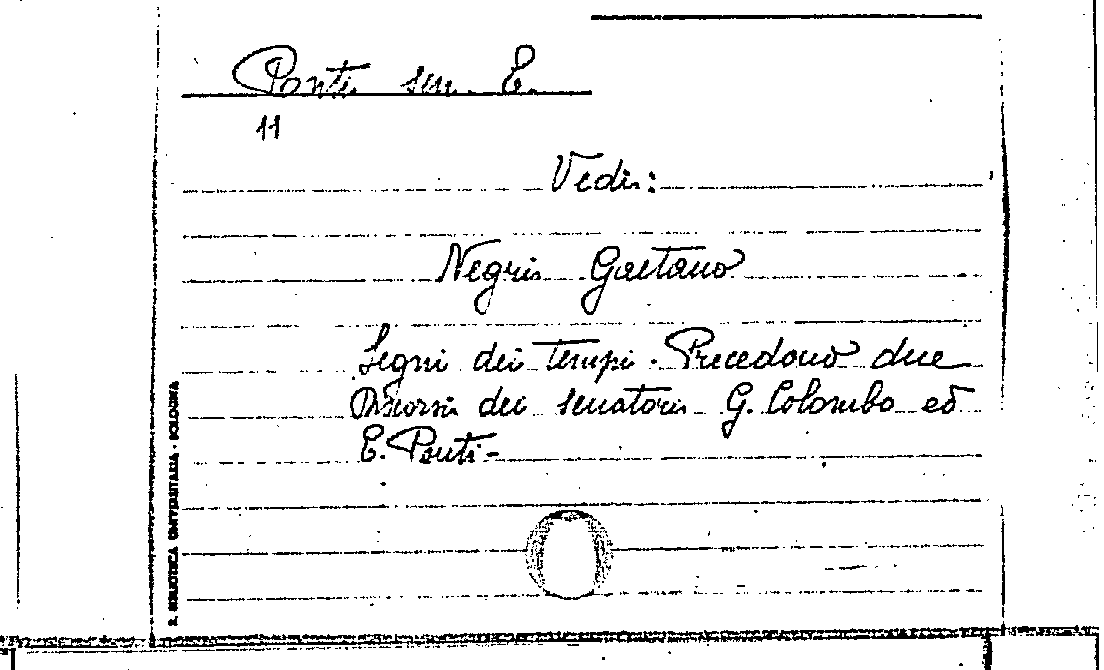 Ponti sen. E.
11
Vedi:
Negri Gaetano
Segni dei tempi. Precedono due
Discorsi dei senatori G. Colombo ed
E. Ponti-
R. BIBLIOTECA UNIVERSITARIA - BOLOGNA